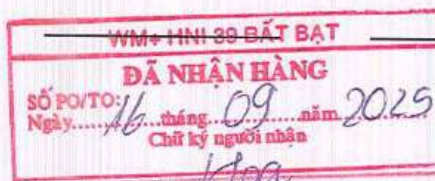 WM+ HNI 39 BẤT BẠT
ĐÃ NHẬN HÀNG
SỐ PO/TO:
Ngày......16......tháng......09......năm 2025
Chữ ký người nhận